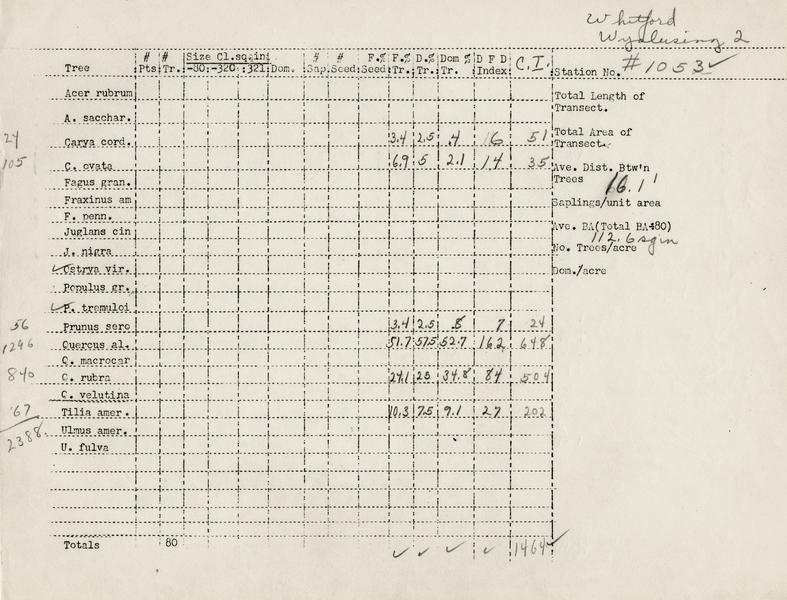 Whitford
Wyalusing 2
# # Size Cl.sq.in # # F.% F.% D.% Dom % D F D C.I.
Tree Pts Tr. -80 -320 321 Dom. Sap. Seed Seed Tr. Tr. Tr. Index Station No. #1053 ✓
Acer rubrum Total Length of
Transect.
A. sacchar.
24 Carya cord. 3.4 2.5 .4 6 51 Total Area of
Transect.
105 C. ovata 6.9 5 2.1 14 35 Ave. Dist. Btw'n
Fagus gran. Trees 16.1'
Fraxinus am Saplings/unit area
F. penn.
Juglans cin Ave. BA(Total BA÷80)
112.6 sq in
J. nigra No. Trees/acre
✓ Ostrya vir. Dom./acre
Populus gr.
✓ P. tremuloi
56 Prunus sero 3.4 2.5 .8 7 24
1296 Quercus al. 51.7 57.5 52.7 162 648
Q. macrocar
840 Q. rubra 24.1 25 34.8 84 504
Q. velutina
67 Tilia amer. 10.3 7.5 9.1 27 202
2388. Ulmus amer.
U. fulva
Totals 80 ✓ ✓ ✓ ✓ 1464 ✓